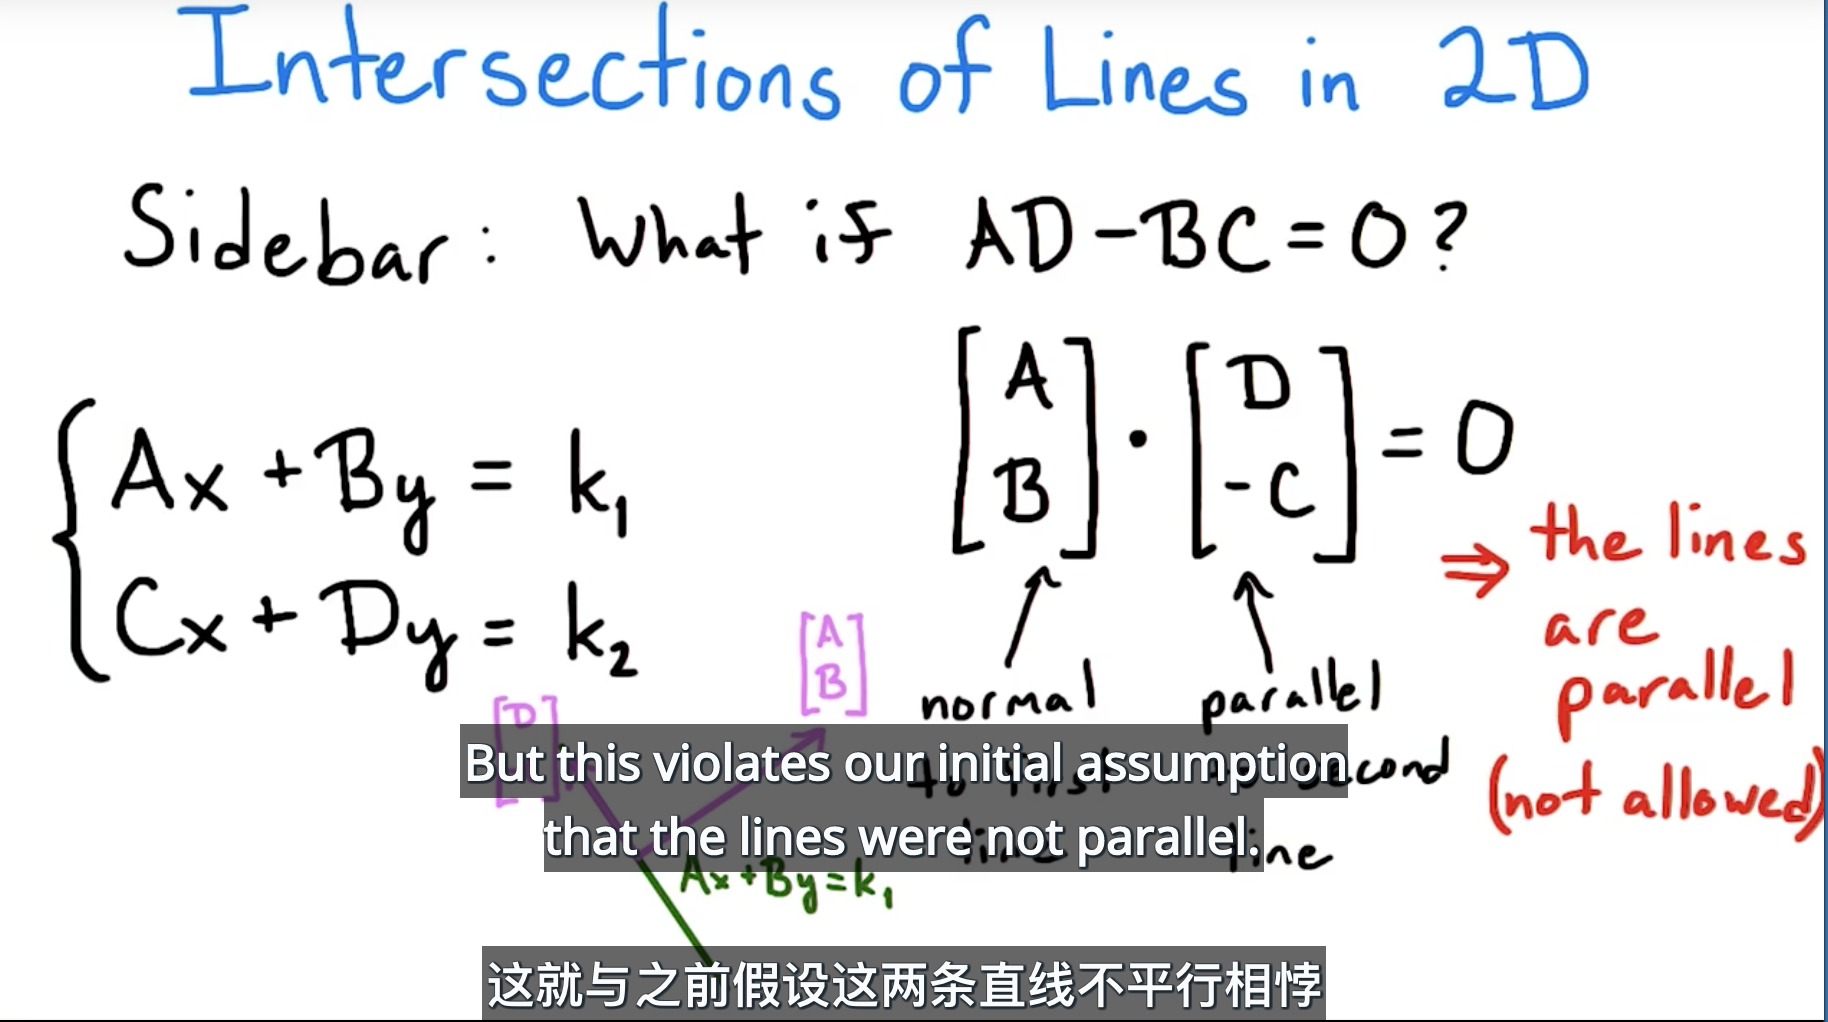 Intersections of Lines in 2D
Sidebar: What if AD-BC=0?
{ Ax + By = k₁
Cx + Dy = k₂
[A B] · [D -C] = 0
⇒ the lines
are
parallel
(not allowed)
normal
to first
line
parallel
second
line
[A B]
[D
Ax+By=k₁
But this violates our initial assumption
that the lines were not parallel.
这就与之前假设这两条直线不平行相悖